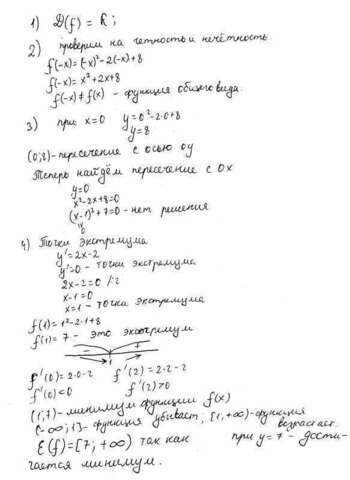 1) D(f) = R;
2) проверим на четность и нечётность.
f(-x)=(-x)²-2(-x)+8
f(-x)=x²+2x+8
f(-x)≠f(x) - функция общего вида.
3) при x=0 y=0²-2·0+8
y=8
(0;8)-пересечение с осью oy
Теперь найдём пересечение с Ox
y=0
x²-2x+8=0
(x-1)²+7=0 - нет решения
4) Точки экстремума
y'=2x-2
y'=0 - точки экстремума
2x-2=0 /:2
x-1=0
x=1 - точка экстремума
f(1)=1²-2·1+8
f(1)=7 - это экстремум
- 1 +
f'(0)=2·0-2 f'(2)=2·2-2
f'(0)<0 f'(2)>0
(1;7)-минимум функции f(x)
(-∞;1]-функция убывает, [1,+∞)-функция
возрастает.
E(f)=[7;+∞) так как при y=7 - дости-
гается минимум.